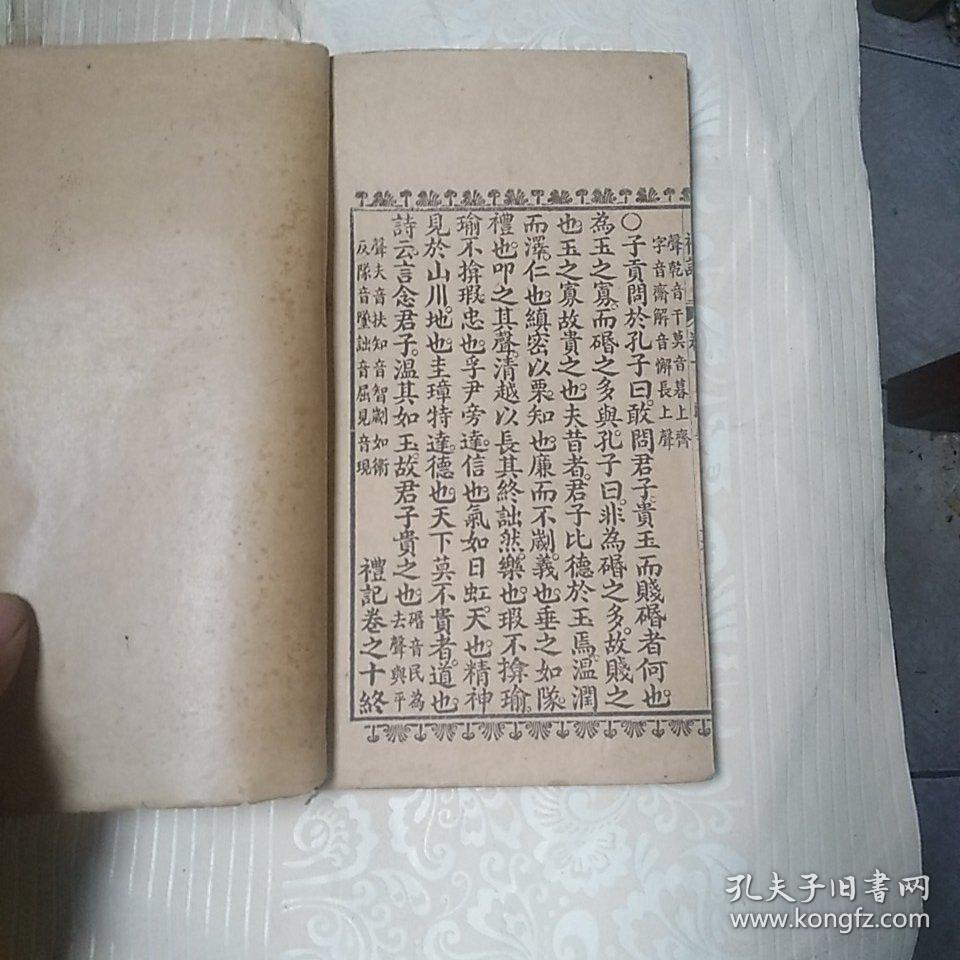 聲乾音干莫音暮上齊
字音齋解音懈長上聲
○子貢問於孔子曰。敢問君子貴玉而賤碈者何也。
為玉之寡。而碈之多與。孔子曰。非為碈之多。故賤之
也。玉之寡。故貴之也。夫昔者。君子比德於玉焉。溫潤
而澤。仁也。縝密以栗。知也。廉而不劌。義也。垂之如隊。
禮也。叩之其聲。清越以長。其終詘然。樂也。瑕不揜瑜。
瑜不揜瑕。忠也。孚尹旁達。信也。氣如日虹。天也。精神
見於山川。地也。圭璋特達。德也。天下莫不貴者。道也。
詩云。言念君子。溫其如玉。故君子貴之也。碈音民為
去聲與平
聲夫音扶知音智劌如衛
反隊音墜詘音屈見音現
禮記卷之十終
孔夫子旧书网
www.kongfz.com